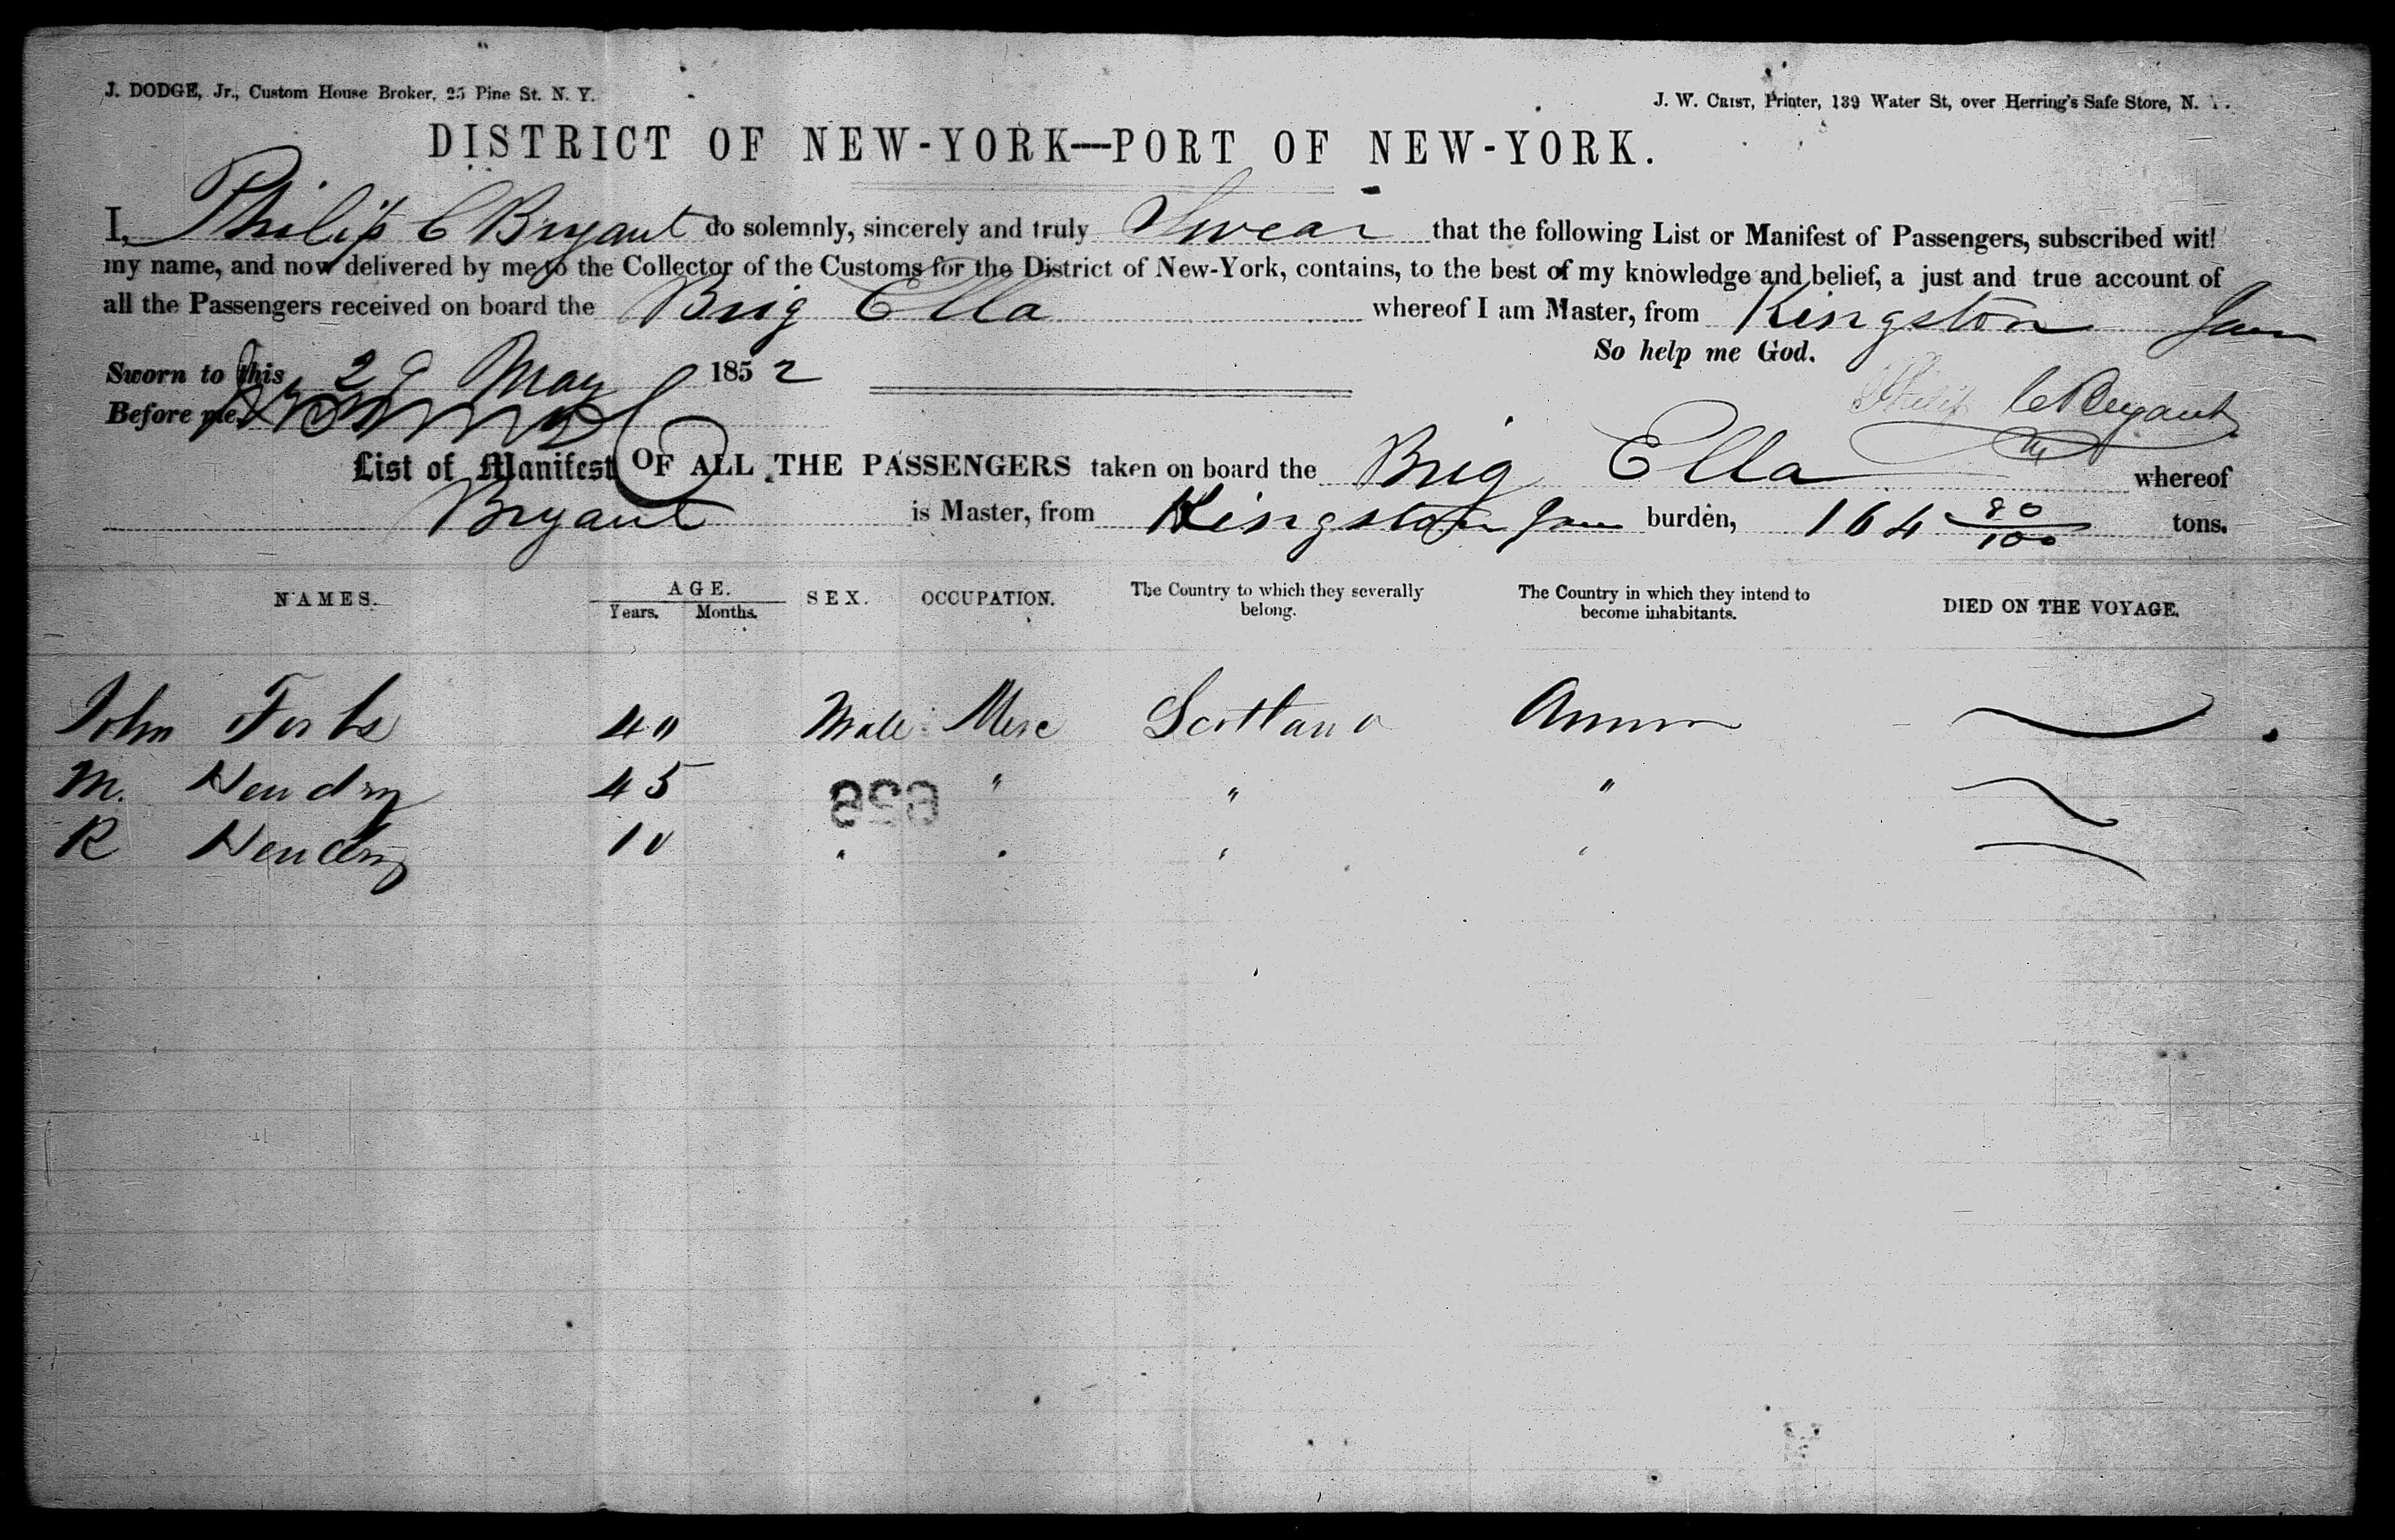 J. DODGE, Jr., Custom House Broker, 25 Pine St. N. Y.
J. W. CRIST, Printer, 139 Water St, over Herring's Safe Store, N.
DISTRICT OF NEW-YORK—PORT OF NEW-YORK.
I, Philip C Bryant do solemnly, sincerely and truly Swear that the following List or Manifest of Passengers, subscribed wit
my name, and now delivered by me to the Collector of the Customs for the District of New-York, contains, to the best of my knowledge and belief, a just and true account of
all the Passengers received on board the Brig Ella whereof I am Master, from Kingston Jam
So help me God.
Sworn to this 29 May 1852
Philip C Bryant
Before me,
List of Manifest OF ALL THE PASSENGERS taken on board the Brig Ella whereof
Bryant is Master, from Kingston Jam burden, 164 80/100 tons.
NAMES. AGE. Years. Months. SEX. OCCUPATION. The Country to which they severally belong. The Country in which they intend to become inhabitants. DIED ON THE VOYAGE.
John 40 Male Merc Scotland
M. Hendry 45 " " "
R Hendry 10 " " " "